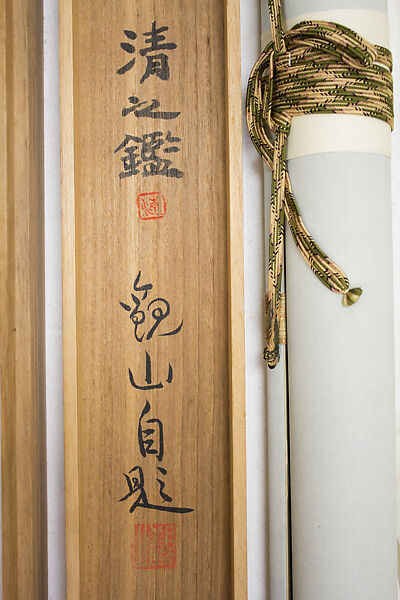 清之鑑
観山自題